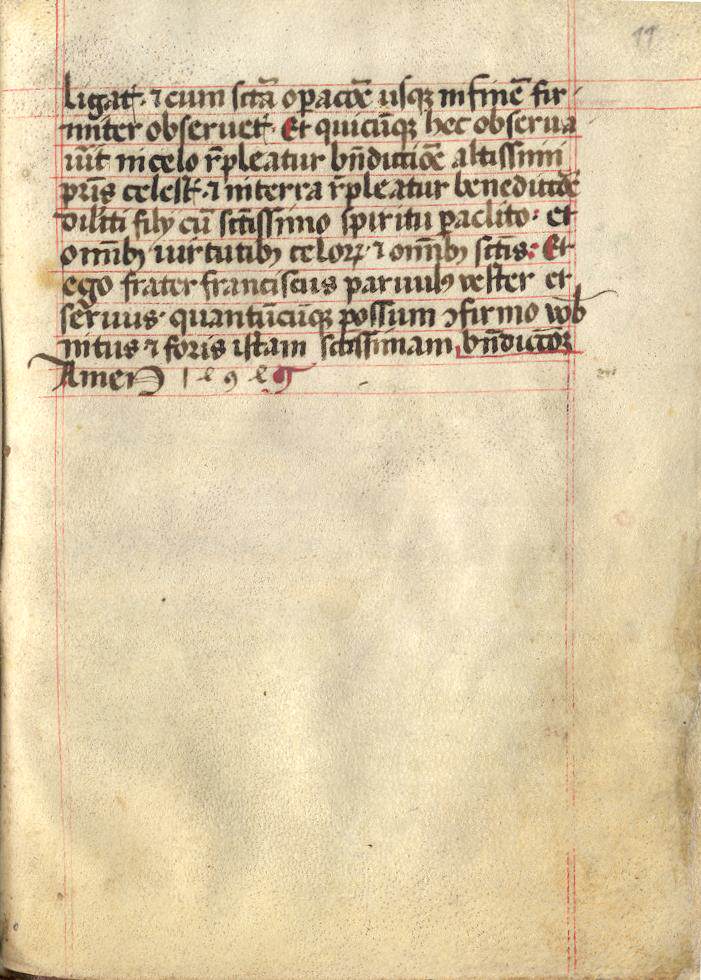 11
ligat̄· ⁊ cum sctā oꝑacōē usqꝫ in finē fir-
miter obseruet· Et quicūqꝫ hec obserua
uīt in celo r̄pleatur bn̄dictiōe altissimi
pr̄is celest̄· ⁊ in terra r̄pleatur benedictōē
dilcti filij cū sctissimo spiritu ꝑaclito· et
omībꝫ uirtutibꝫ celorꝝ ⁊ omībꝫ sctis: Et
ego frater franciscus paruulꝰ vester et
seruus· quantūcūqꝫ possum ꝯfirmo vob
intus ⁊ foris istam sctissimam bn̄dictōꝫ
Amen